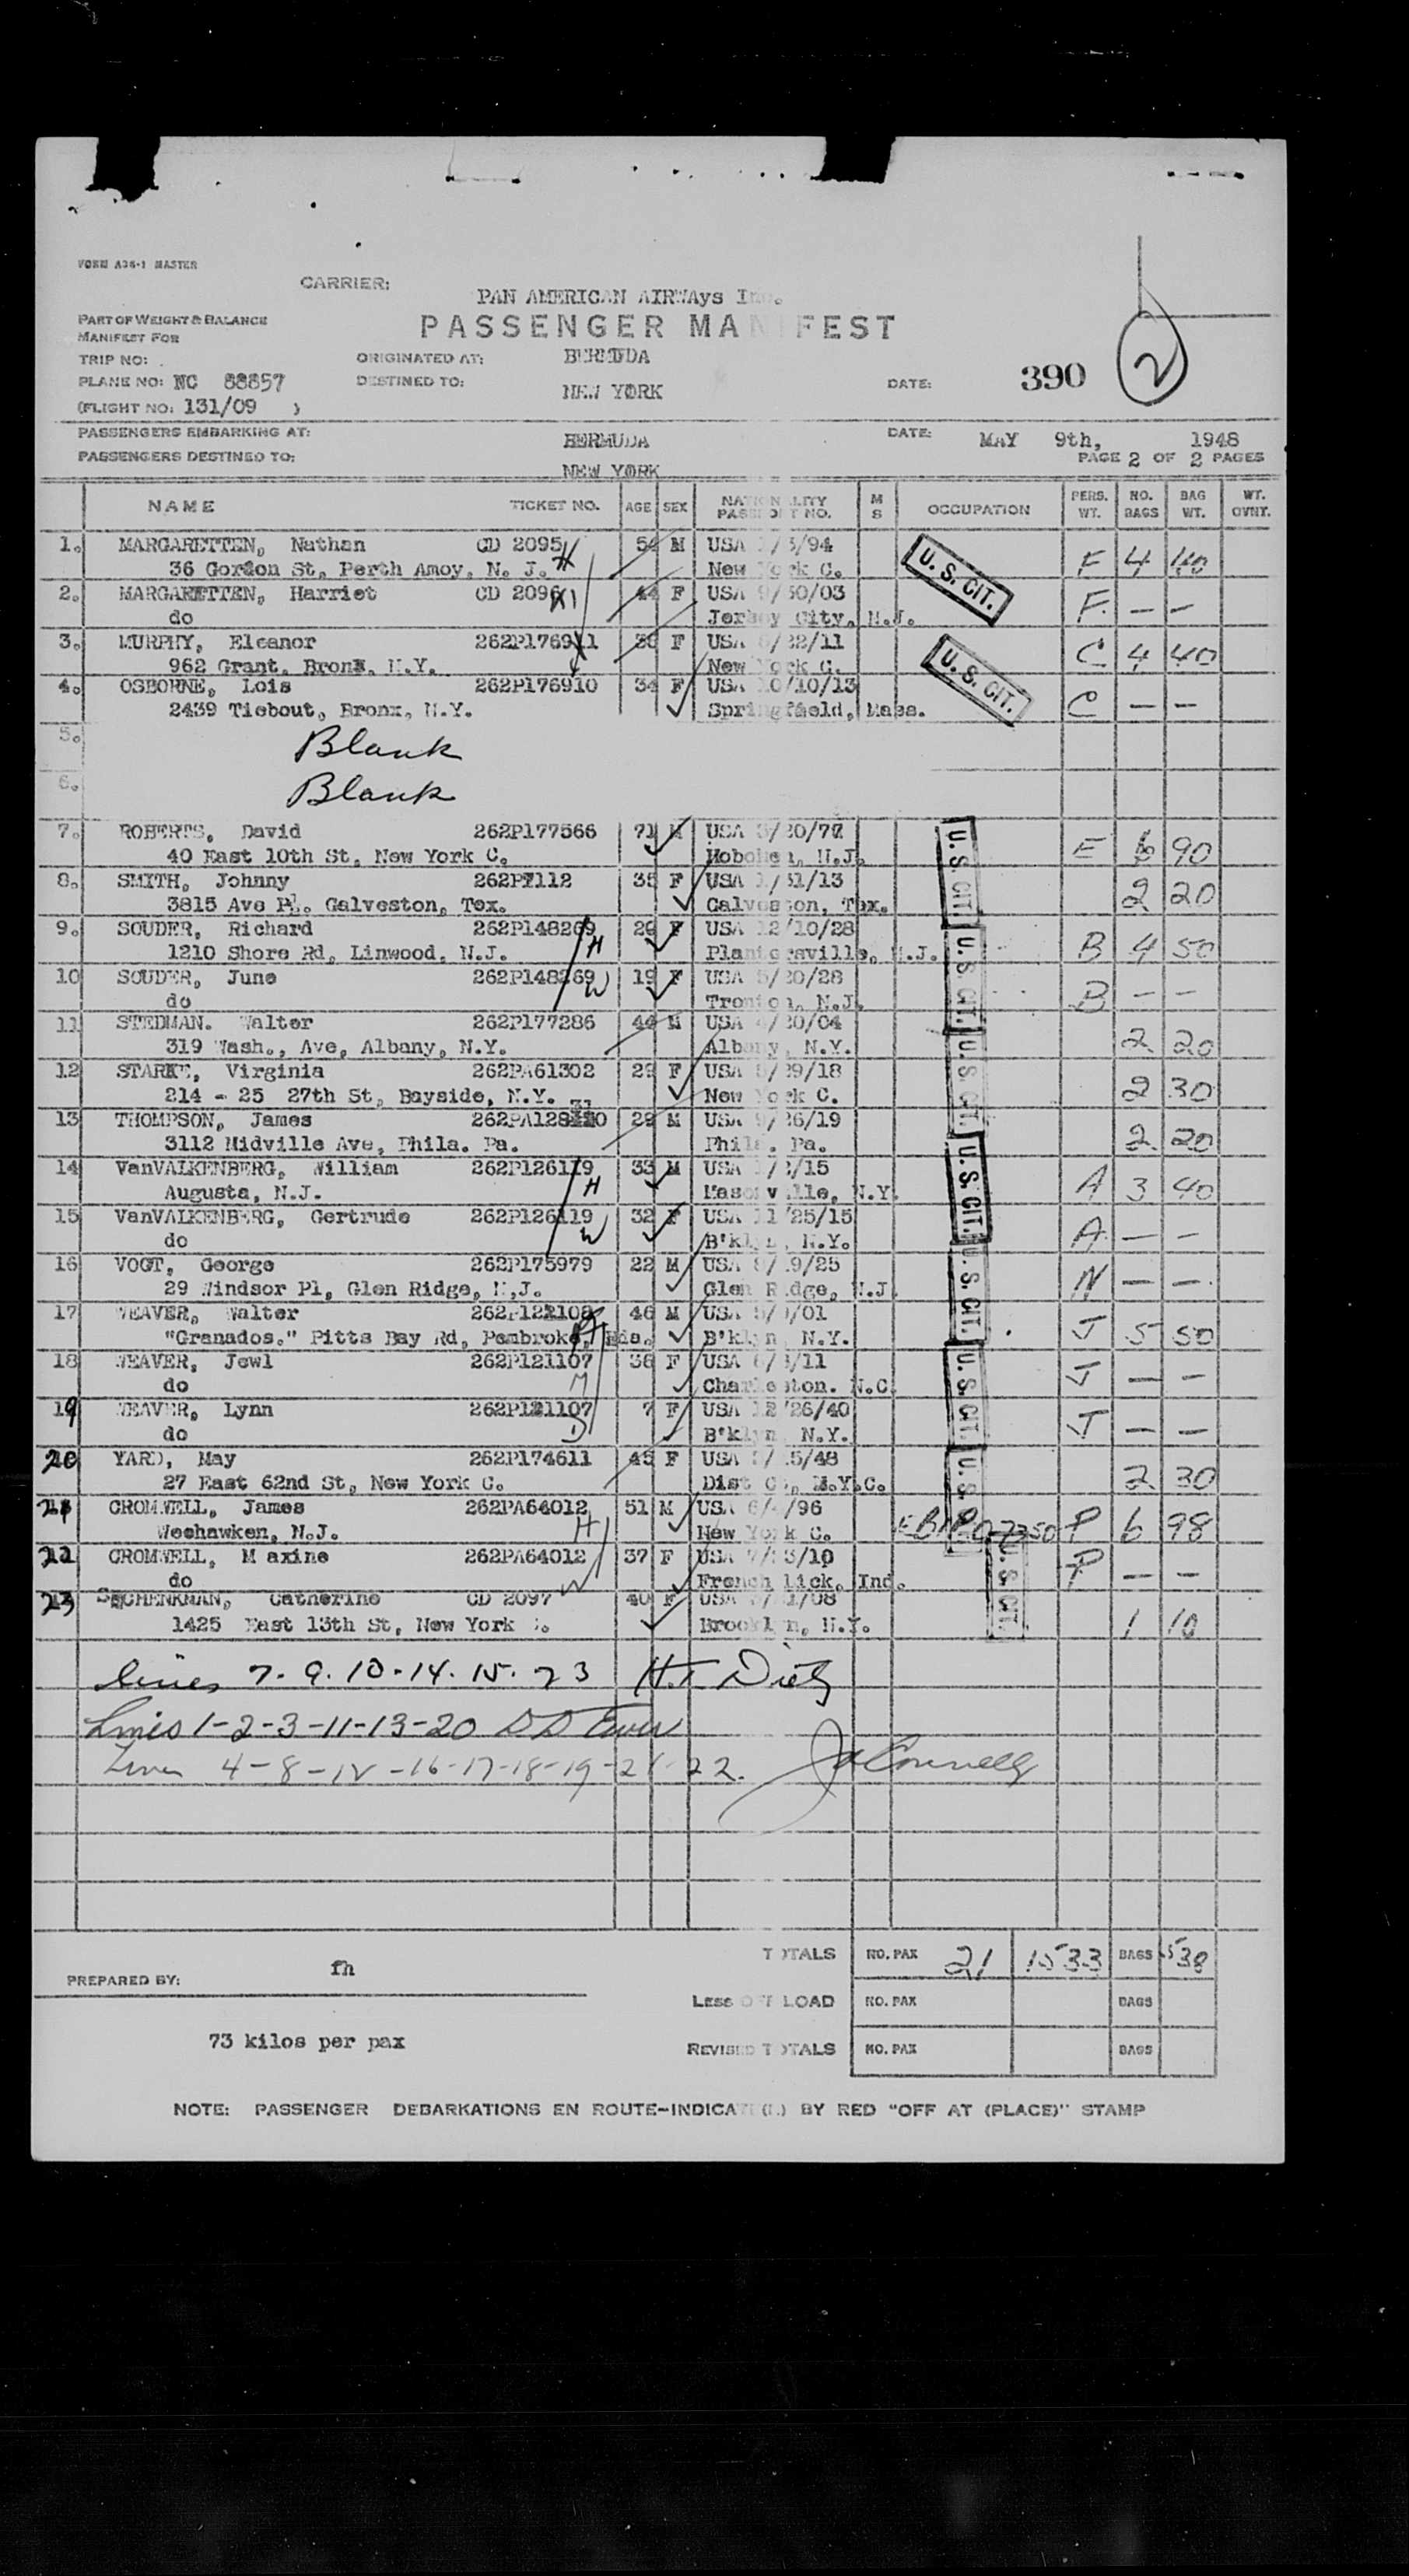 FORM A36-1 MASTER
CARRIER: PAN AMERICAN AIRWAys Inc.
PASSENGER MANIFEST
PART OF WEIGHT & BALANCE
MANIFEST FOR
TRIP NO: ORIGINATED AT: BERMUDA
PLANE NO: NC 88857 DESTINED TO: NEW YORK DATE: 390 2
(FLIGHT NO: 131/09 )
PASSENGERS EMBARKING AT: BERMUDA DATE: MAY 9th, 1948
PASSENGERS DESTINED TO: NEW YORK PAGE 2 OF 2 PAGES
NAME TICKET NO. AGE SEX NATIONALITY PASSPORT NO. M S OCCUPATION PERS. WT. NO. BAGS BAG WT. WT. OVNT.
1. MARGARETTEN, Nathan CD 2095 H 54 M USA /94 U. S. CIT. F 4 40
36 Gordon St, Perth Amoy, N. J. New York C.
2. MARGARETTEN, Harriet CD 2096 44 F USA /03 F — —
do Jersey City, N.J.
3. MURPHY, Eleanor 262P176911 36 F USA /22/11 U. S. CIT. C 4 40
962 Grant, Bronx, N.Y. New York C.
4. OSBORNE, Lois 262P176910 34 F USA 10/10/13 C — —
2439 Tiebout, Bronx, N.Y. Springfield, Mass.
5. Blank
6. Blank
7. ROBERTS, David 262P177566 71 M USA /20/77 U. S. CIT. E 6 90
40 East 10th St, New York C. Hoboken, N.J.
8. SMITH, Johnny 262P7112 35 F USA /31/13 2 20
3815 Ave P. Galveston, Tex. Galveston, Tex.
9. SOUDER, Richard 262P148269 H USA 12/10/28 U. S. CIT. B 4 50
1210 Shore Rd, Linwood, N.J. N.J.
10 SOUDER, June 262P148269 W 19 F USA /20/28 B — —
do Trenton, N.J.
11 STEDMAN. Walter 262P177286 44 M USA /20/04 U. S. CIT. 2 20
319 Wash., Ave, Albany, N.Y. Albany, N.Y.
12 STARKE, Virginia 262PA61302 29 F USA /29/18 2 30
214 - 25 27th St, Bayside, N.Y. New York C.
13 THOMPSON, James 28 M USA 9/26/19 2 20
3112 Midville Ave, Phila. Pa. Phila. Pa.
14 VanVALKENBERG, William 262P126119 H 33 M USA /15 U. S. CIT. A 3 40
Augusta, N.J. Masonville, N.Y.
15 VanVALKENBERG, Gertrude 262P126119 W 32 F USA 11/25/15 A — —
do B'klyn, N.Y.
16 VOGT, George 262P175979 22 M USA /25 U. S. CIT. N — —
29 Windsor Pl, Glen Ridge, N.J. Glen Ridge, N.J.
17 WEAVER, Walter 46 M USA /01 J 5 50
"Granados." Pitts Bay Rd, Pembroke, Bda. B'klyn, N.Y.
18 WEAVER, Jewl 262P121107 36 F USA /11 U. S. CIT. J — —
do Charleston. N.C.
19 WEAVER, Lynn 262P121107 D 7 F USA 12/26/40 J — —
do B'klyn, N.Y.
20 YARD, May 262P174611 45 F USA /48 U. S. CIT. 2 30
27 East 62nd St, New York C. N.Y.C.
21 CROMWELL, James 262PA64012 H 51 M USA 6/ /96 P 6 98
Weehawken, N.J. New York C.
22 CROMWELL, M axine 262PA64012 W 37 F USA /10 U. S. CIT. P — —
do French Lick, Ind.
23 SCHENKMAN, Catherine CD 2097 40 F USA /08 1 10
1425 East 13th St, New York C. Brooklyn, N.Y.
lines 7. 9. 10. 14. 15. 23 H.T. Dietz
Lines 1-2-3-11-13-20
Lines 4-8-12-16-17-18-19-21-22.
TOTALS NO. PAX 21 1533 BAGS 538
PREPARED BY: fh
LESS OFF LOAD NO. PAX BAGS
73 kilos per pax
REVISED TOTALS NO. PAX BAGS
NOTE: PASSENGER DEBARKATIONS EN ROUTE-INDICATE(D) BY RED "OFF AT (PLACE)" STAMP